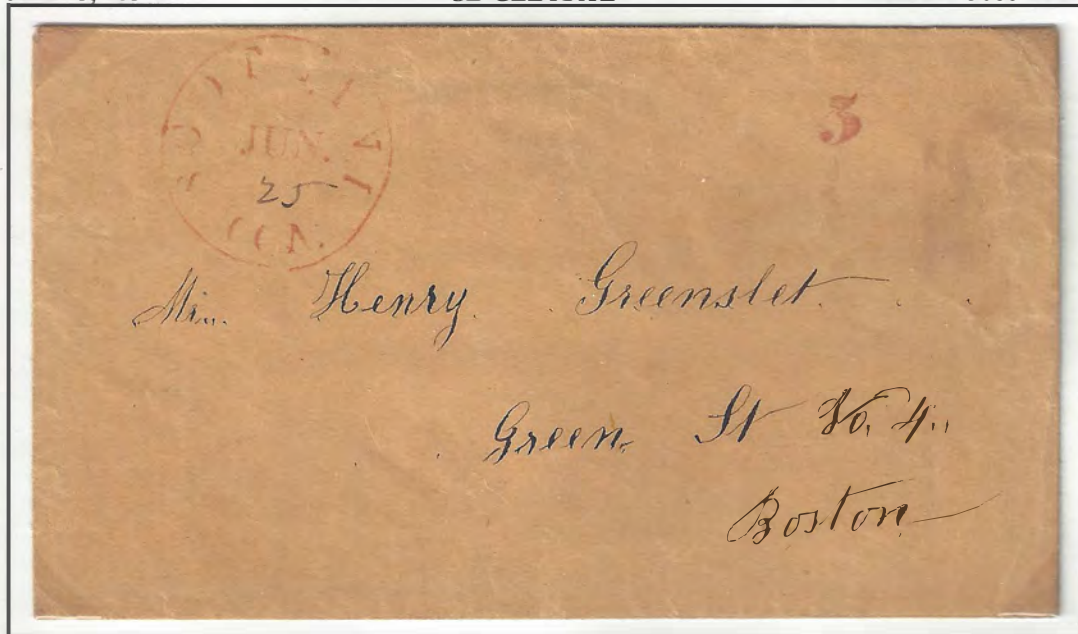 3
JUN.
25
CON.
Mr. Henry Greenslet
Green St No. 4.
Boston